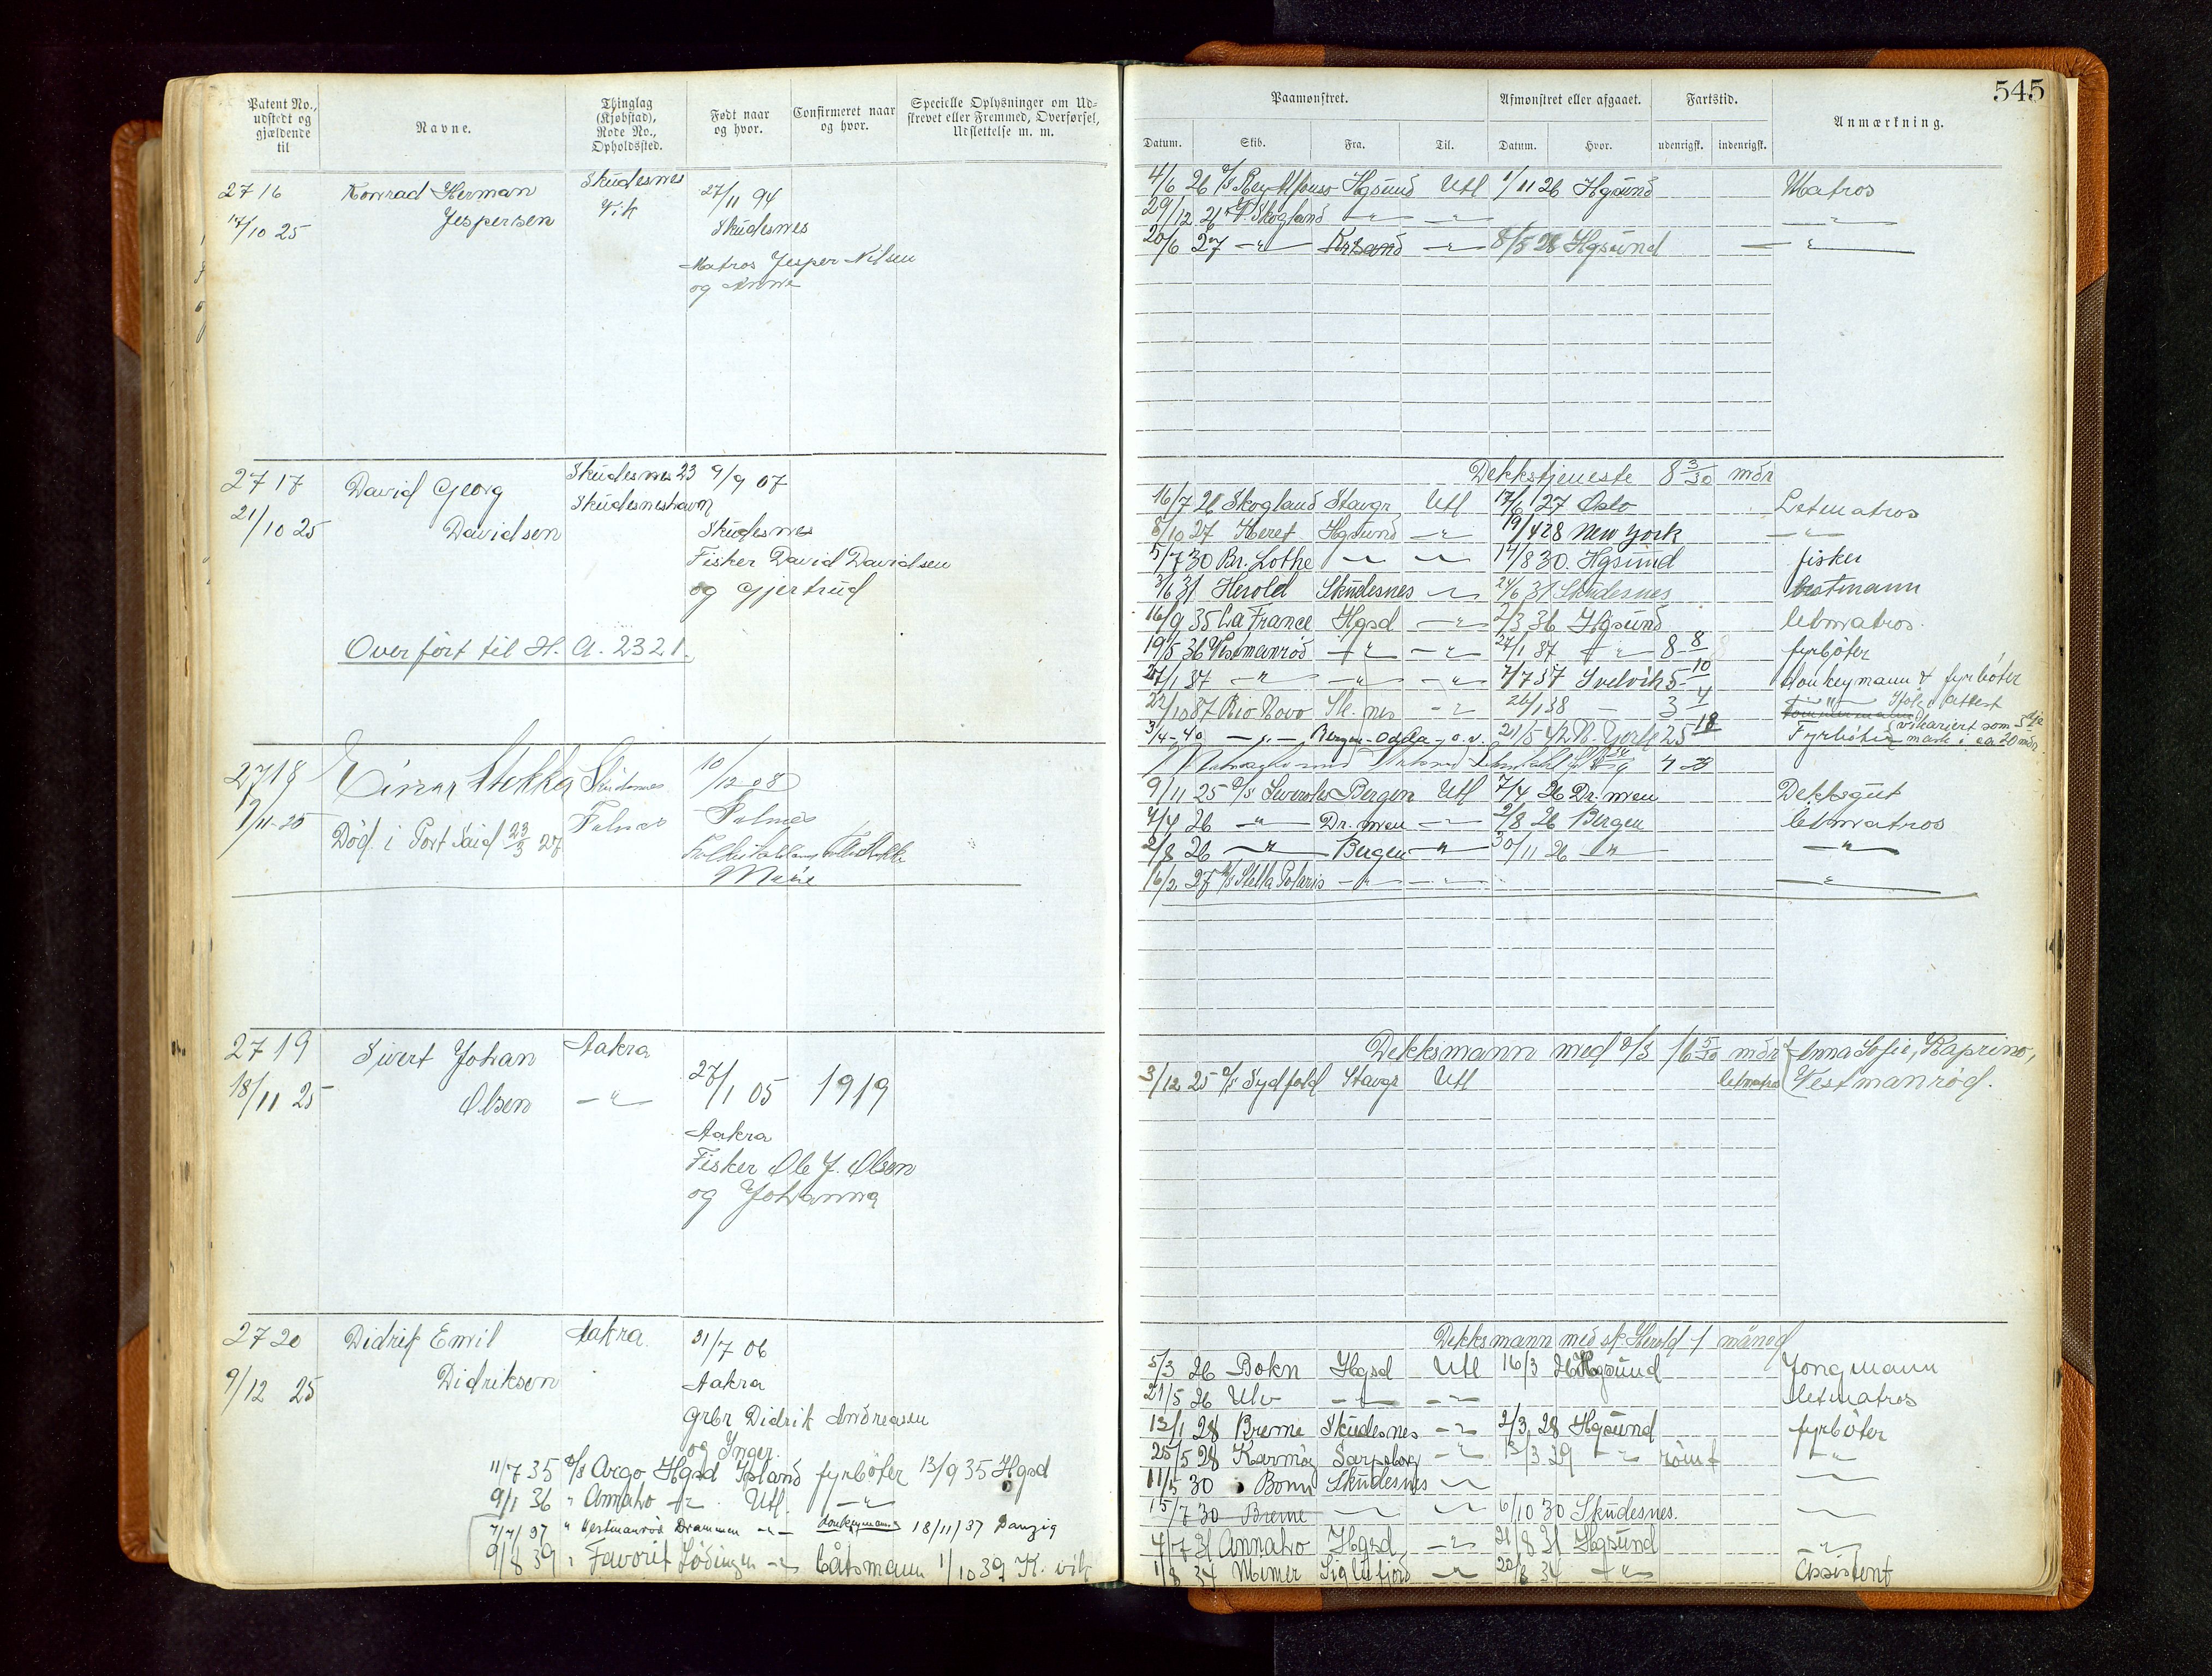 545
Patent No., udstedt og gjældende til
Navne.
Thinglag (Kjøbstad), Rode No., Opholdssted.
Født naar og hvor.
Confirmeret naar og hvor.
Specielle Oplysninger om Udskrevet eller Fremmed, Overførsel, Udslettelse m. m.
Paamønstret.
Afmønstret eller afgaaet.
Fartstid.
Anmærkning.
Datum. Skib. Fra. Til. Datum. Hvor. udenrigsk. indenrigsk.
2716 Konrad Herman Skudesnes 27/11 94
17/10 25 Jespersen Vik Skudesnes
Matros Jesper Nilsen
og Anne
4/6 26 Hgsund Utl 1/11 26 Hgsund Matros
29/12 26 Skogland -"- -"- -"-
20/6 27 -"- Krsand -"- 8/5 28 Hgsund -"-
2717 David Georg Skudesnes 23 9/9 07
21/10 25 Davidsen Skudesneshavn Skudesnes
Fisker David Davidsen
og Gjertrud
Overført til H. A. 2321.
Dekkstjeneste 8 3/30 mdr
16/7 26 Skogland Stavgr Utl 17/6 27 Oslo Letmatros
8/10 27 Heret Hgsund -"- 19/4 28 New York -"-
5/7 30 Br. Lothe -"- -"- 14/8 30. Hgsund fisker
3/6 31 Herold Skudesnes -"- 24/6 31 Skudesnes bestmann
16/9 35 La France Hgsd -"- 2/3 36 Hgsund letmatros.
19/5 36 Vestmanrød -"- -"- 27/1 37 -"- 8 8 fyrbøter
27/1 37 -"- -"- -"- 7/7 37 Svelvik 5 10 donkeymann & fyrbøter
22/10 37 Rio Novo Sk.nes -"- 26/1 38 - 3 4 attest
3/4-40 -"- Bergen-Odda-o.v. 21/5-42 N. York 25 18 Fyrbøter (vikariert som 3dje mask i ca 20 mdr
2718 Einar Stekka Skudesnes 10/12 08
9/11-25 Falnes Falnes
Død i Port Said 23/3 27
Marie
9/11 25 Bergen Utl 7/4 26 Dr.men Dekksgut
7/4 26 -"- Dr.men -"- 2/8 26 Bergen letmatros
2/8 26 -"- Bergen -"- 30/11 26 -"- -"-
16/2 27 Stella Polaris -"- -"- -"-
2719 Sivert Johan Aakra 27/1 05 1919
18/11 25 Olsen -"- Aakra
Fisker Ole J. Olsen
og Johanna
Dekksmann med D/S 16 5/30 mdr Anna Sofie, Kaprino,
3/12 25 D/S Sydfold Stavgr Utl letmatros Vestmanrød.
2720 Didrik Emil Aakra. 31/7 06
9/12 25 Didriksen Aakra
Grbr Didrik Andreasen
og Inger.
11/7 35 D/S Argo Hgsd Island fyrbøter 13/9 35 Hgsd
9/1 36 " Annaho -"- Utl. -"-
7/7/37 " Vestmanrød Drammen -"- donkeymann 18/11/37 Danzig
9/8 39 " Favorit Lødingen -"- båtsmann 1/10 39 K. vik
Dekksmann med sk Herold 1 måned
5/3 26 Bokn Hgsd Utl 16/3 26 Hgsund Jongmann
21/5 26 Ulv -"- -"- letmatros
13/1 28 Breme Skudesnes -"- 2/3 28 Hgsund fyrbøter
25/5 28 Karmøy Sarpsborg -"- 3/3 29 -"- rømt -"-
11/5 30 Bomu Skudesnes -"- -"-
15/7 30 Breme -"- -"- 6/10 30 Skudesnes. -"-
4/7 31 Annaho Hgsd -"- 21/8 31 Hgsund -"-
1/8 34 Mimer Siglufjord -"- 20/8 34 -"- Assistent